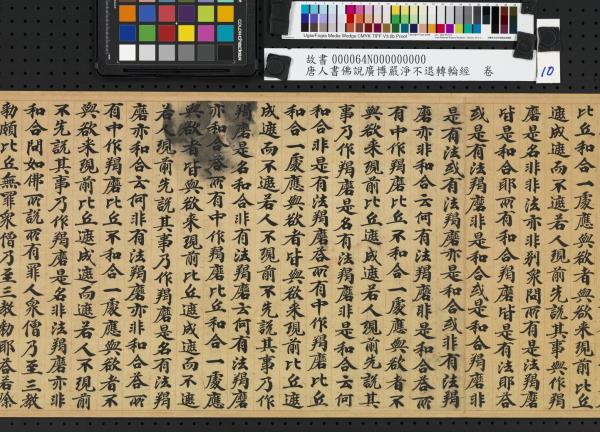 故書 000064N000000000
唐人書佛說廣博嚴淨不退轉輪經 卷
10
Ugra/Fogra Media Wedge CMYK TIFF V3.0b Proof
比丘和合一處應與欲者與欲來現前比丘
遮成遮而不遮若人現前先說其事與作羯
磨是名非非法亦非別衆問所有有法羯磨
皆是和合耶所有和合羯磨皆是有法耶荅
或是有法羯磨非是和合或是和合羯磨非
是有法或有法羯磨亦是和合或非有法羯
磨亦非和合云何有法羯磨非是和合荅所
有中作羯磨比丘不和合一處應與欲者不
與欲來現前比丘遮成遮若人現前先說其
事乃作羯磨是名有法羯磨非是和合云何
和合非是有法羯磨荅所有中作羯磨比丘
和合一處應與欲者皆與欲來現前比丘遮
成遮而不遮若人不現前不先說其事乃作
羯磨是名和合非有法羯磨云何有法羯磨
亦和合荅所有中作羯磨比丘和合一處應
與欲者皆與欲來現前比丘遮成遮而不遮
若人現前先說其事乃作羯磨是名有法羯
磨亦和合云何非有法羯磨亦非和合荅所
有中作羯磨比丘不和合一處應與欲者不
與欲來現前比丘遮成遮而遮若人不現前
不先說其事乃作羯磨是名非法羯磨亦非
和合問如佛所說所有罪人衆僧乃至三教
勅頗比丘無罪衆僧乃至三教勅耶荅若除